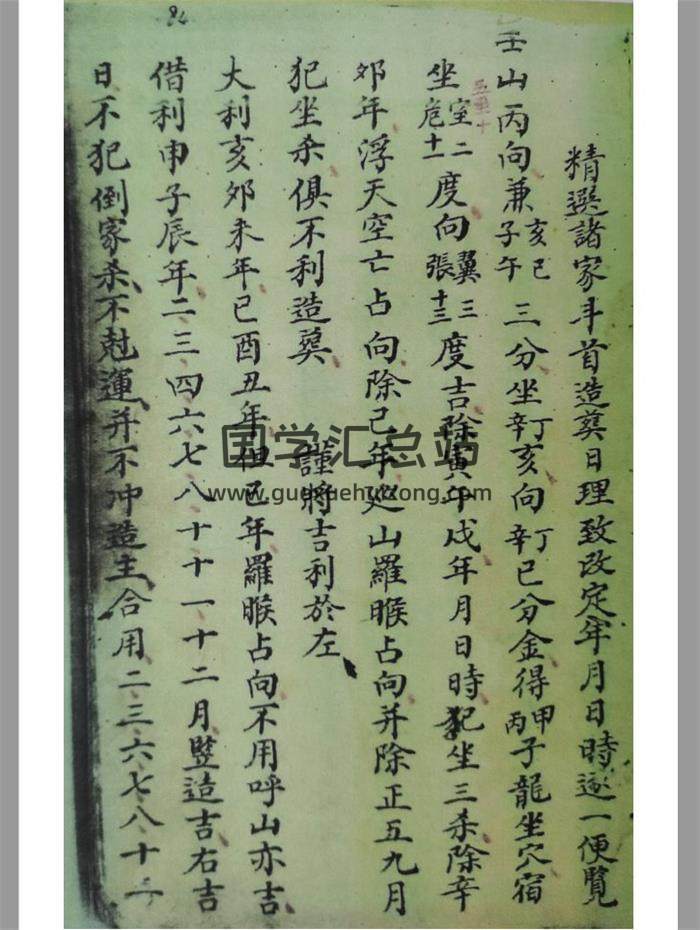 精選諸家斗首造葬日理致改定年月日時逐一便覽
壬山丙向兼亥巳子午三分坐辛丁亥向辛丁巳分金得甲丙子龍坐穴宿
坐室二危十一度向翼三張十三度吉除寅午戌年月日時犯坐三杀除辛
夘年浮天空亡占向除己年廵山羅睺占向并除正五九月
犯坐杀俱不利造葬 謹將吉利於左
大利亥夘未年巳酉丑年但巳年羅睺占向不用呼山亦吉
借利申子辰年二三四六七八十十一十二月竪造吉右吉
日不犯倒家杀不尅運并不冲造主合用二三六七八十十一
国学汇总站
www.guoxuehuizong.com